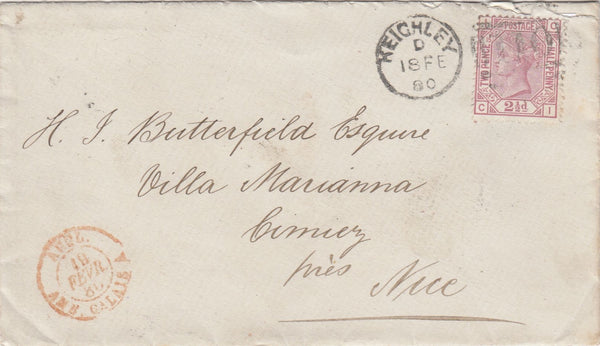 KEIGHLEY
D
18 FE
80
POSTAGE
TWO PENCE
HALFPENNY
2½d
C I
H. I. Butterfield Esquire
Villa Marianna
Cimiez
près Nice
ANGL.
18
FEVR.
80
AMB. CALAIS A